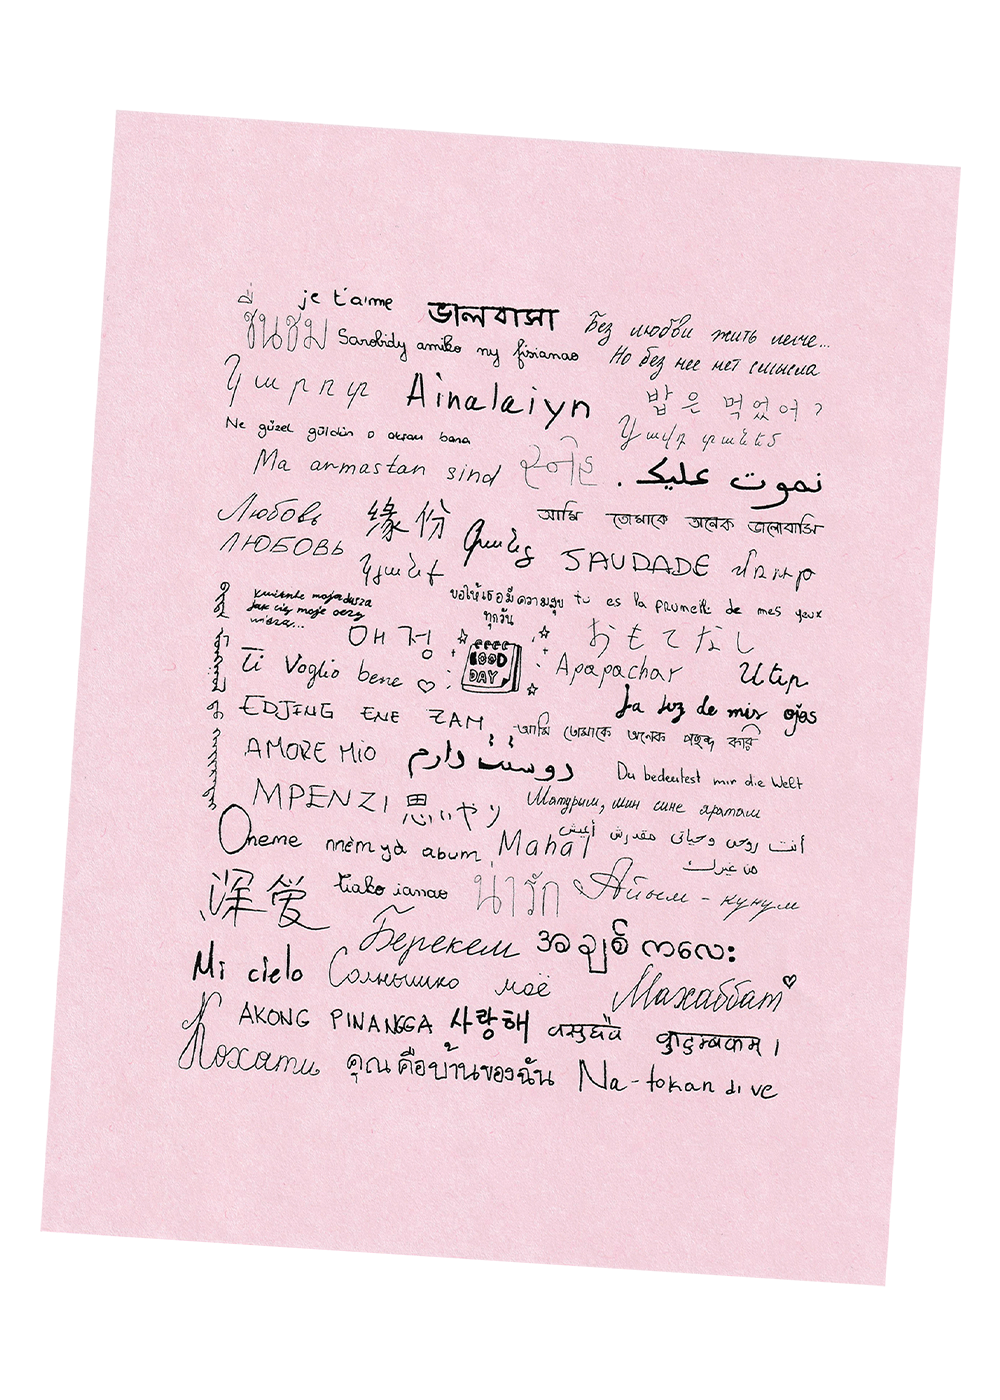 je t'aime
ชื่นชม
ভালবাসা
Без любви жить легче...
Но без нее нет смысла
Sarobidy amiko ny fisianao
Ainalaiyn
밥은 먹었어?
Ne güzel güldün o akşam bana
Ma armastan sind
સ્નેહ
نموت عليك.
Любовь
ЛЮБОВЬ
缘份
আমি তোমাকে অনেক ভালোবাসি
SAUDADE
ขอให้เธอมีความสุข
ทุกวัน
tu es la prunelle de mes yeux
애정
GOOD
DAY
おもてなし
Ti Voglio bene
Apapachar
Սեր
La luz de mis ojos
EDJING ENE ZAM
আমি তোমাকে অনেক পছন্দ করি
AMORE MIO
دوستت دارم
Du bedeutest mir die Welt
MPENZI
思いやり
Матурым, мин сине яратам
Oheme
Mahal
أنت روحي وحياتي مقدرش أعيش
من غيرك
深爱
tiako ianao
น่ารัก
Айым - күнүм
Берекем
အချစ်ကလေး
Mi cielo
Солнышко моё
Махаббат
AKONG PINANGGA
사랑해
वसुधैव कुटुम्बकम्।
Кохати
คุณคือบ้านของฉัน
Na-tokan di ve